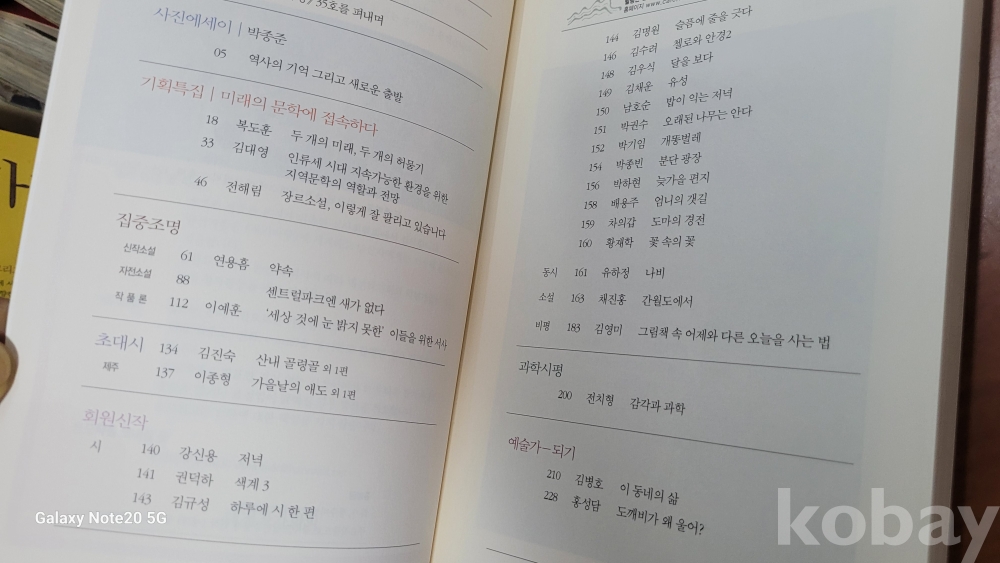 35호를 펴내며
사진에세이 | 박종준
05 역사의 기억 그리고 새로운 출발
기획특집 | 미래의 문학에 접속하다
18 복도훈 두 개의 미래, 두 개의 허물기
33 김대영 인류세 시대 지속가능한 환경을 위한
지역문학의 역할과 전망
46 전해림 장르소설, 이렇게 잘 팔리고 있습니다
집중조명
신작소설 61 연용흠 약속
자전소설 88 센트럴파크엔 새가 없다
작 품 론 112 이예훈 '세상 것에 눈 밝지 못한' 이들을 위한 서사
초대시 134 김진숙 산내 골령골 외 1편
제주 137 이종형 가을날의 애도 외 1편
회원신작
시 140 강신용 저녁
141 권덕하 색계 3
143 김규성 하루에 시 한 편
홈페이지 www.
144 김명원 슬픔에 줄을 긋다
146 김수려 첼로와 안경2
148 김우식 달을 보다
149 김채운 유성
150 남호순 밥이 익는 저녁
151 박권수 오래된 나무는 안다
152 박기임 개똥벌레
154 박종빈 분단 광장
156 박하현 늦가을 편지
158 배용주 엄니의 갯길
159 차의갑 도마의 경전
160 황재학 꽃 속의 꽃
동시 161 유하정 나비
소설 163 채진홍 간월도에서
비평 183 김영미 그림책 속 어제와 다른 오늘을 사는 법
과학시평
200 전치형 감각과 과학
예술가—되기
210 김병호 이 동네의 삶
228 홍성담 도깨비가 왜 울어?
Galaxy Note20 5G
kobay